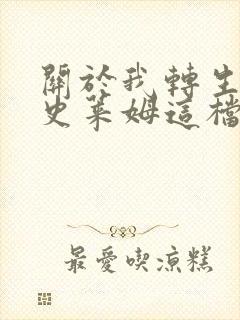 關於我轉生
史萊姆這檔
最愛喫涼糕